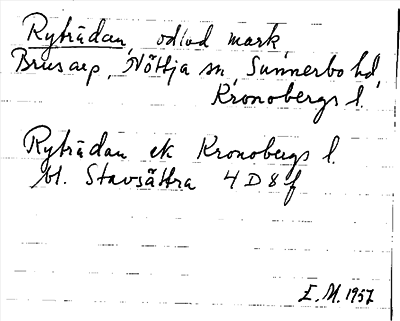 Ryträdan, odlad mark,
Brusarp, Nöttja sn, Sunnerbo hd,
Kronobergs l.
Ryträdan ek Kronobergs l.
bl. Stavsättra 4 D 8 f
E.M. 1957